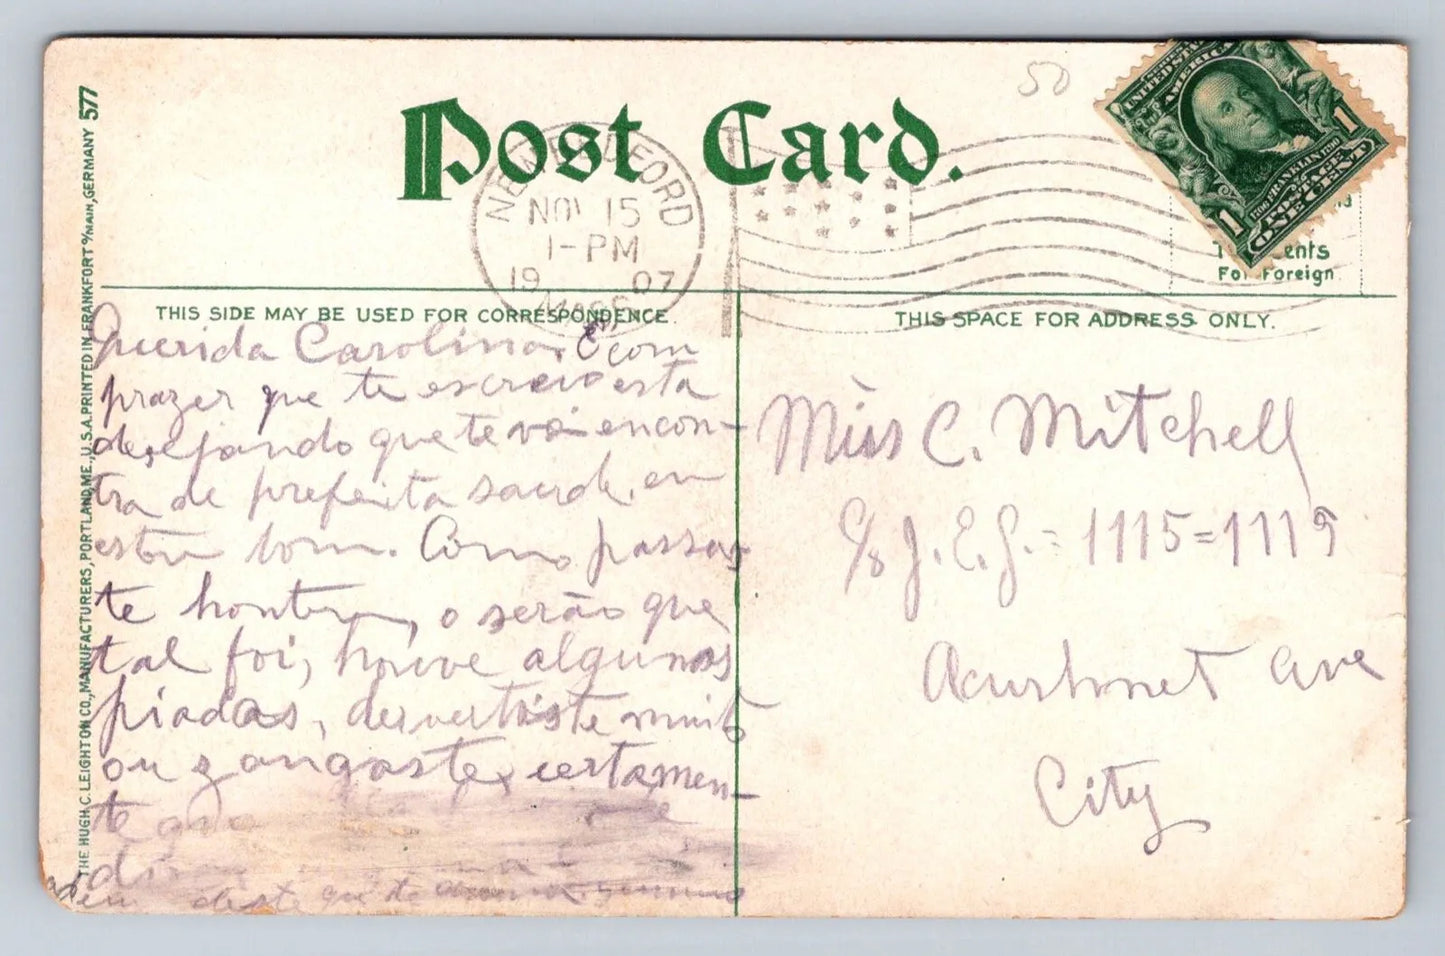 50
Post Card.
UNITED STATES
AMERICA
FRANKLIN 1790
POSTAGE
ONE CENT
1 1
NEW BEDFORD
NOV 15
1-PM
1907
MASS
For Foreign
THIS SIDE MAY BE USED FOR CORRESPONDENCE.
THIS SPACE FOR ADDRESS ONLY.
THE HUGH C. LEIGHTON CO., MANUFACTURERS, PORTLAND, ME., U.S.A. PRINTED IN FRANKFORT o/MAIN, GERMANY 577
Querida Carolina. É com
prazer que te escrevo esta
desejando que te vá encon-
tra de prefeita saude, eu
estou bom. Como passas-
te hontem, o serão que
tal foi, houve algumas
piadas, devertiste muito
ou zangaste, certamen-
te que
deste que te
Miss C. Mitchell
c/o J. E. G. = 1115=1119
Acushnet ave
City